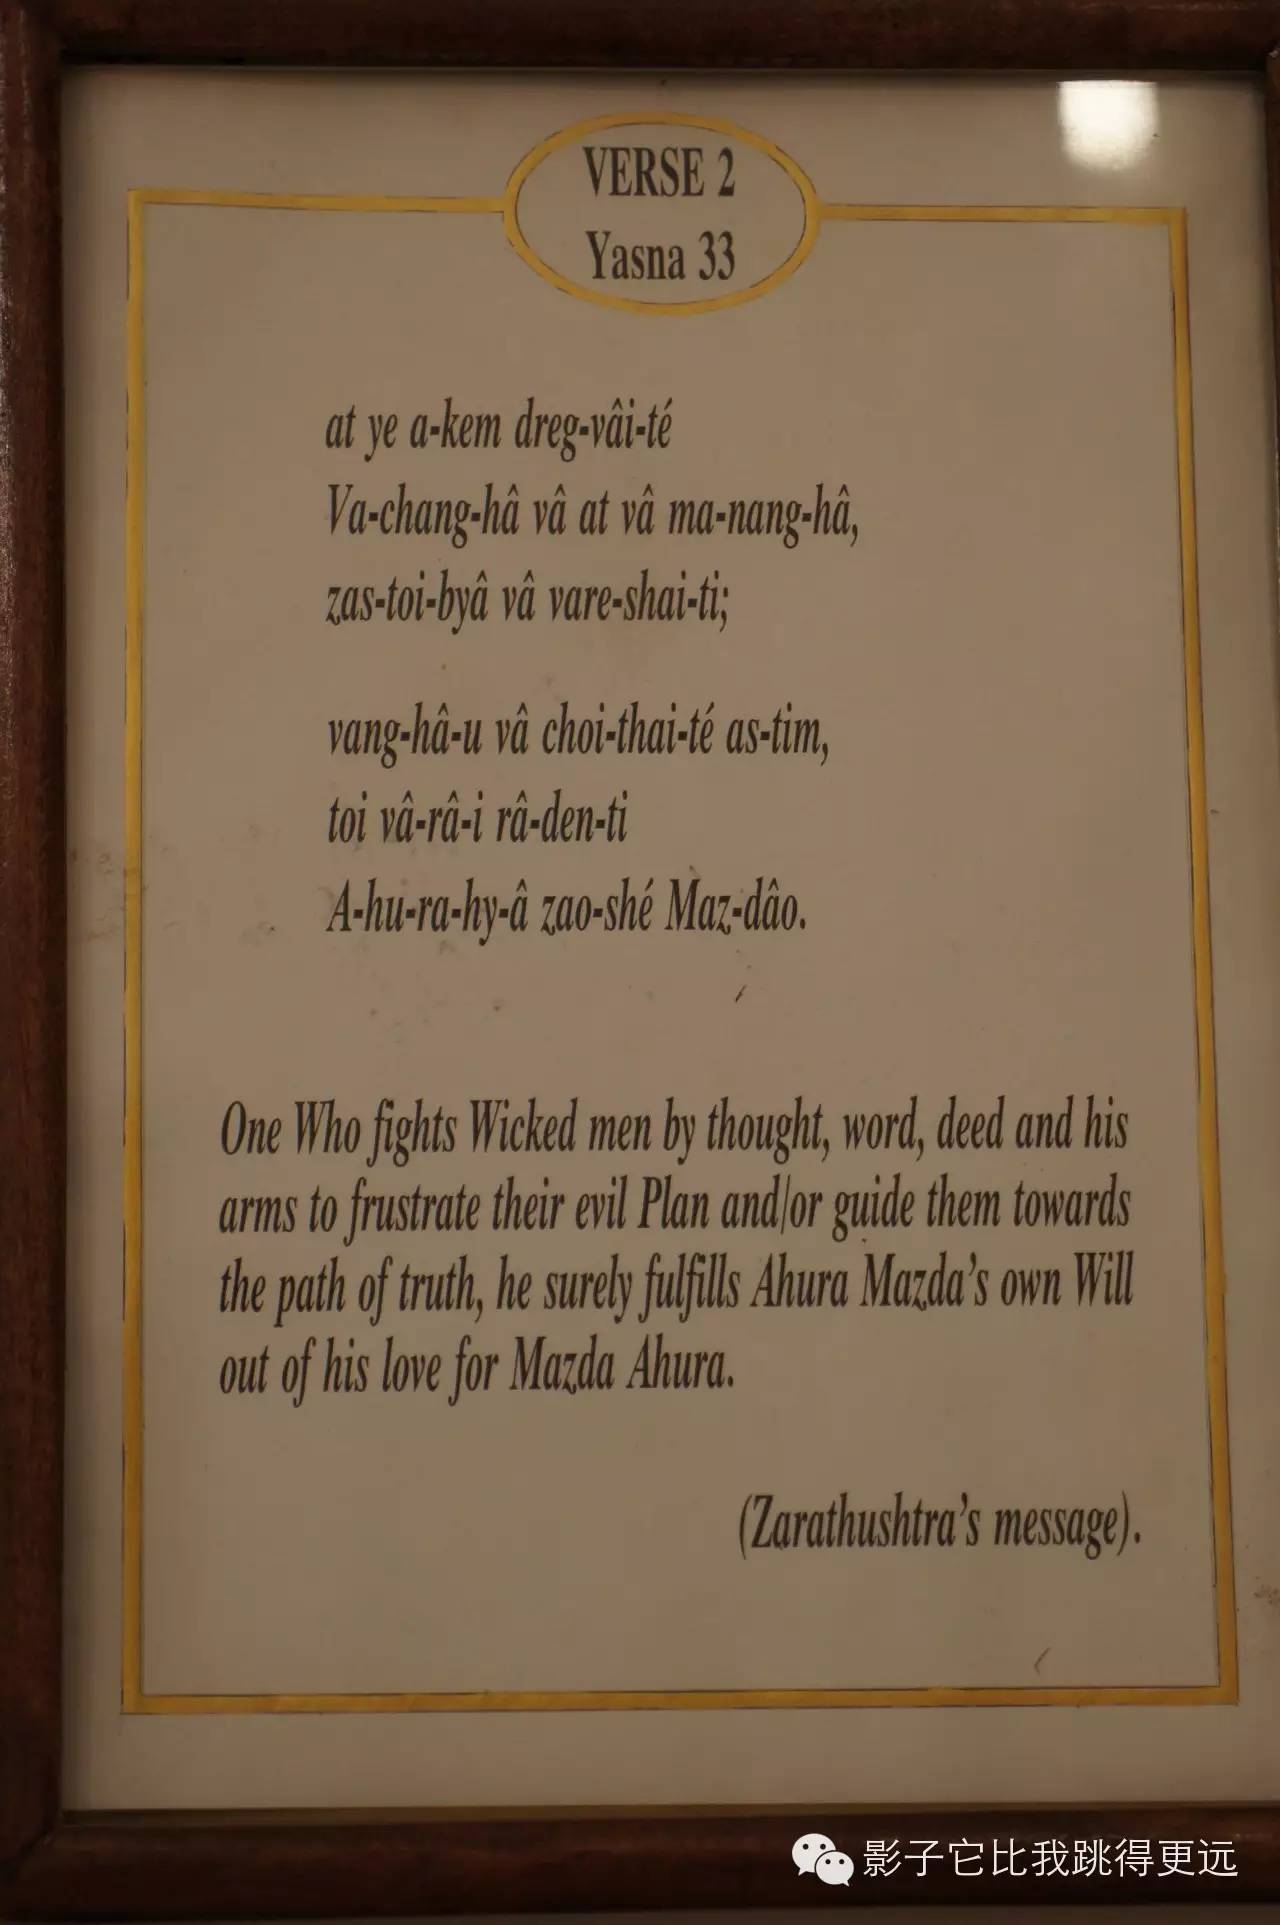 VERSE 2
Yasna 33
at ye a-kem dreg-vâi-té
Va-chang-hâ vâ at vâ ma-nang-hâ,
zas-toi-byâ vâ vare-shai-ti;
vang-hâ-u vâ choi-thai-té as-tim,
toi vâ-râ-i râ-den-ti
A-hu-ra-hy-â zao-shé Maz-dâo.
One Who fights Wicked men by thought, word, deed and his
arms to frustrate their evil Plan and/or guide them towards
the path of truth, he surely fulfills Ahura Mazda's own Will
out of his love for Mazda Ahura.
(Zarathushtra's message).
影子它比我跳得更远